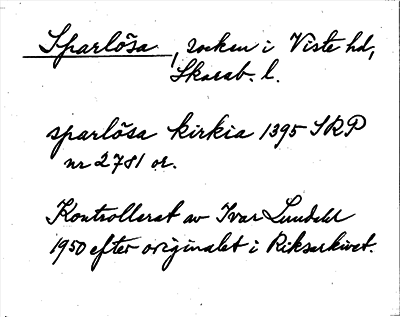 Sparlösa, socken i Viste hd,
Skarab. l.
sparlösa kirkia 1395 SRP
nr 2781 or.
Kontrollerat av Ivar Lundahl
1950 efter originalet i Riksarkivet.